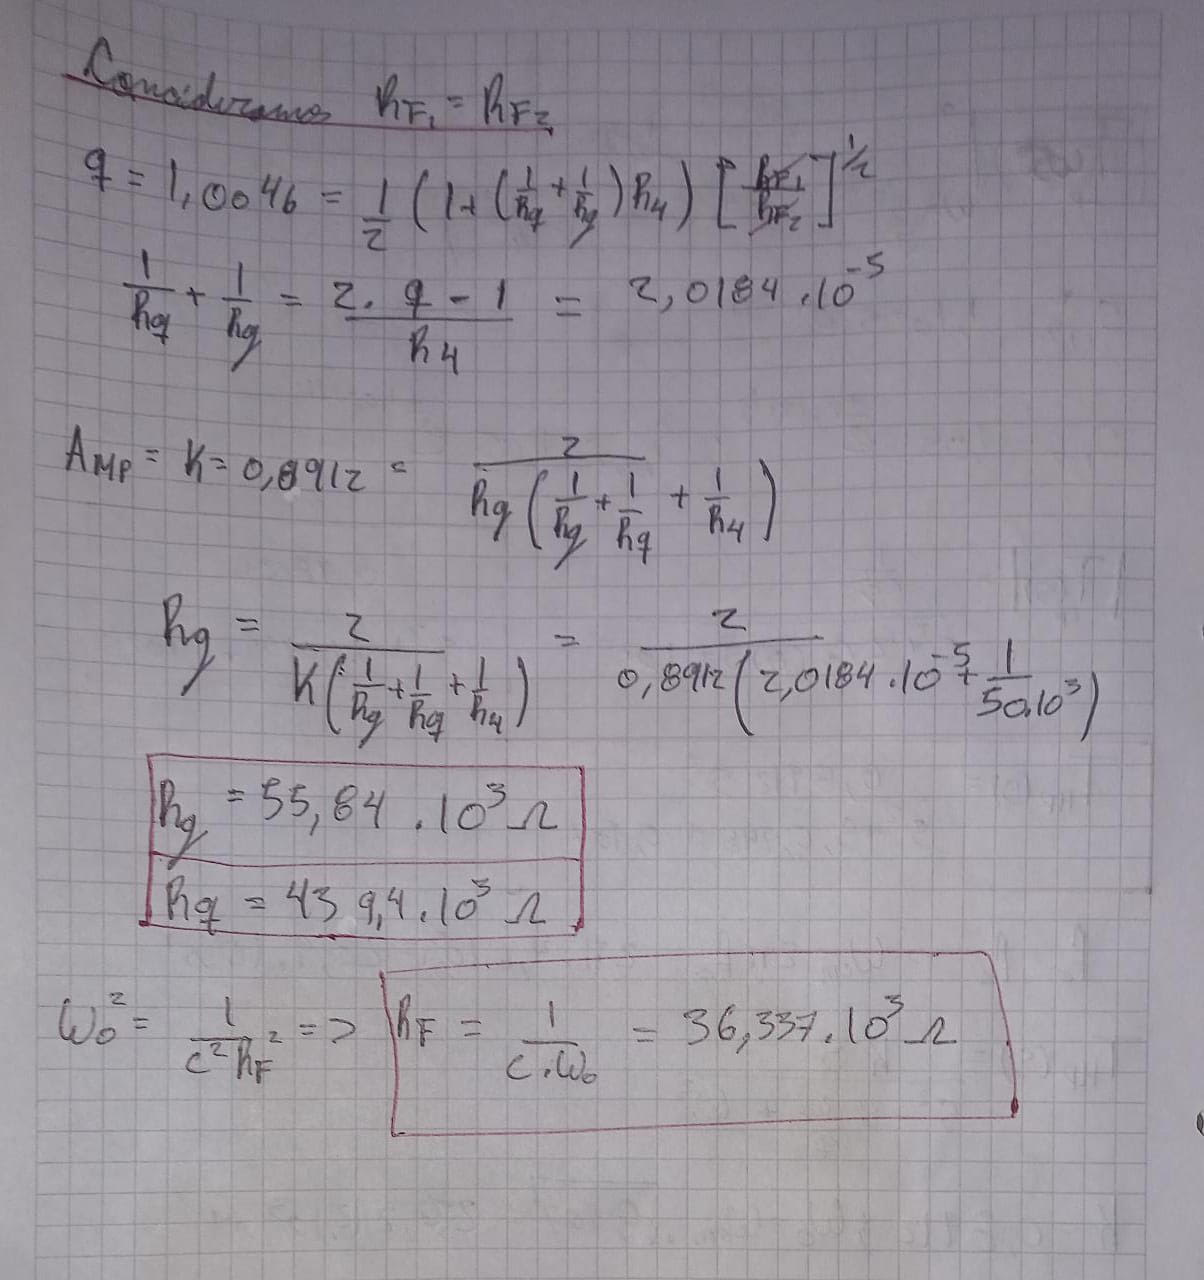 Consideramos RF₁ = RF₂
q = 1,0046 = 1/2 (1 + (1/Rq + 1/Rg) R4) [RF₁/RF₂]^1/2
1/Rq + 1/Rg = (2 . q - 1)/R4 = 2,0184 . 10^-5
AMP = K = 0,8912 = 2/(Rg (1/Rg + 1/Rq + 1/R4))
Rg = 2/(K (1/Rg + 1/Rq + 1/R4)) = 2/(0,8912 (2,0184 . 10^-5 + 1/(50.10^3)))
Rg = 55,84 . 10^3 Ω
Rq = 439,4 . 10^3 Ω
ωo^2 = 1/(c^2 RF^2) => RF = 1/(c . ωo) = 36,337 . 10^3 Ω